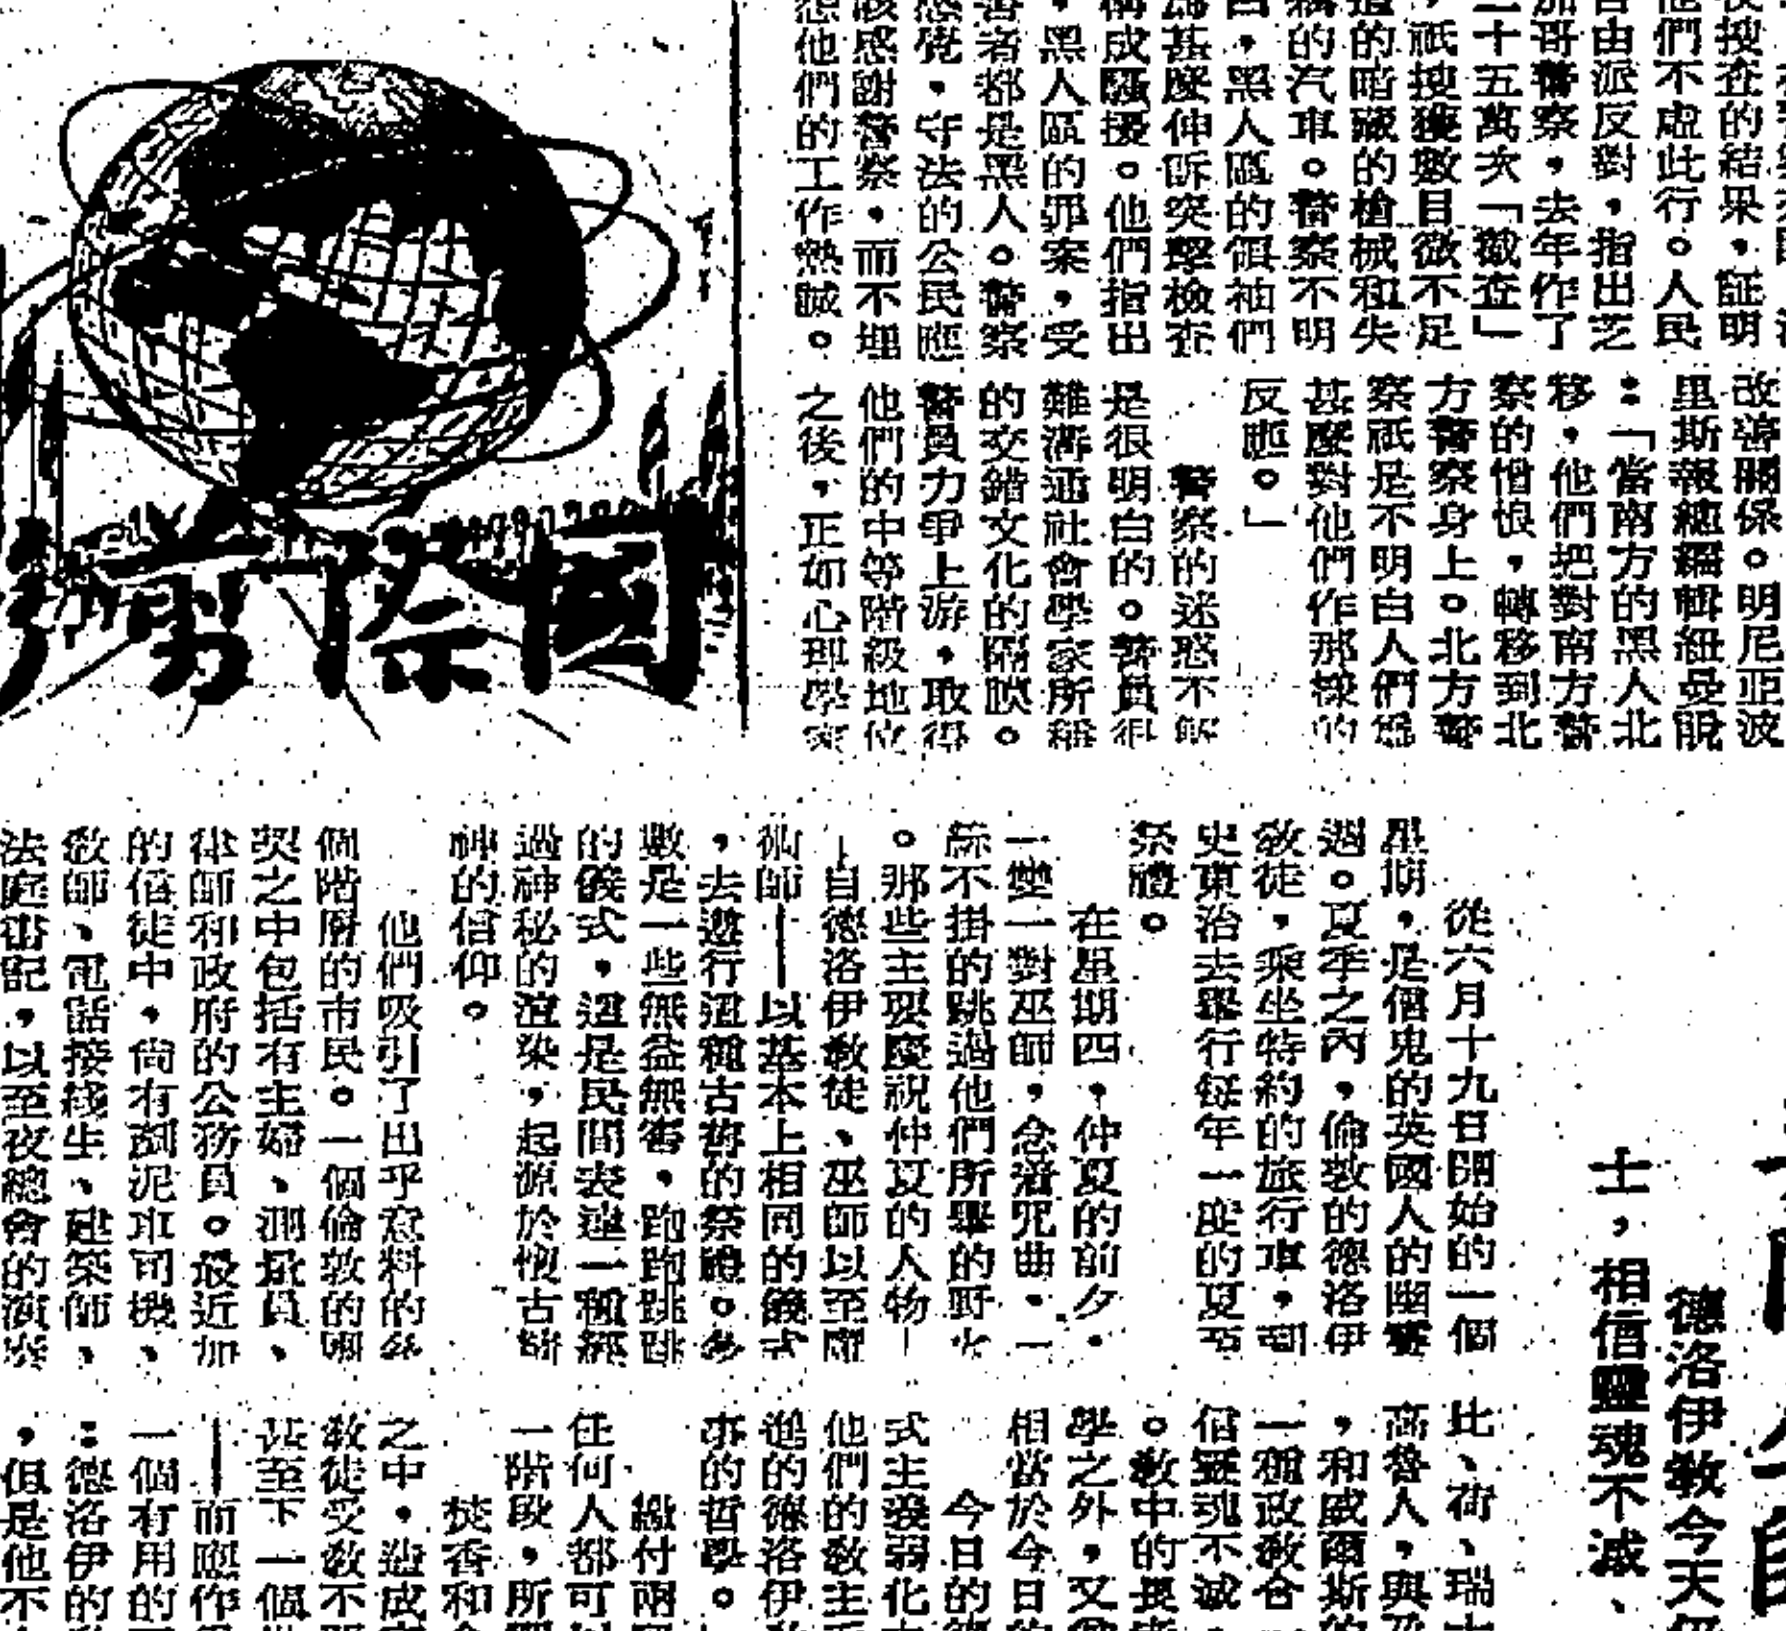 搜查的結果，証明
他們不虛此行。人民
自由派反對，指出芝
加哥警察，去年作了
二十五萬次「截查」
，祇搜獲數目微不足
道的暗藏的槍械和失
竊的汽車。警察不明
白，黑人區的領袖們
為甚麼伸訴突擊檢查
構成騷擾。他們指出
，黑人區的罪案，受
害者都是黑人。警察
感覺，守法的公民應
該感謝警察，而不埋
怨他們的工作熱誠。
改善關係。明尼亞波
里斯報總編輯紐曼說
：「當南方的黑人北
移，他們把對南方警
察的憎恨，轉移到北
方警察身上。北方警
察祇是不明白人們為
甚麼對他們作那樣的
反應。」
警察的迷惑不解
是很明白的。警員很
難溝通社會學家所稱
的交錯文化的隔膜。
警員力爭上游，取得
他們的中等階級地位
之後，正如心理學家
國際剪
德洛伊教今天仍
士，相信靈魂不滅、
從六月十九日開始的一個
星期，是個鬼的英國人的幽靈
週。夏季之內，倫敦的德洛伊
教徒，乘坐特約的旅行車，到
史東治去舉行每年一度的夏至
祭禮。
在星期四，仲夏的前夕，
一雙一對巫師，念着咒曲，一
絲不掛的跳過他們所舉的野火
。那些主要慶祝仲夏的人物—
—自德洛伊教徒、巫師以至魔
術師——以基本上相同的儀式
，去遵行這種古舊的祭禮。多
數是一些無益無害，跑跑跳跳
的儀式，這是民間表達一種經
過神秘的渲染，起源於懷古
神的信仰。
他們吸引了出乎意料的各
個階層的市民。一個倫敦的團
契之中包括有主婦、測量員、
律師和政府的公務員。最近加
的信徒中，尚有剷泥車司機、
教師、電話接綫生、建築師、
法庭書記，以至夜總會的演奏
比、荷、瑞士
高魯人，與
，和威爾斯的
一種政教合
信靈魂不滅，
。教中的長
學之外，又
相當於今日的
今日的
式主義弱化
他們的教主
進的德洛伊
事的哲學。
繳付兩
任何人都可以
一階段，所
焚香和
之中，造成
教徒受教不
甚至下一個
——而應作
一個有用的
：德洛伊的
，但是他不